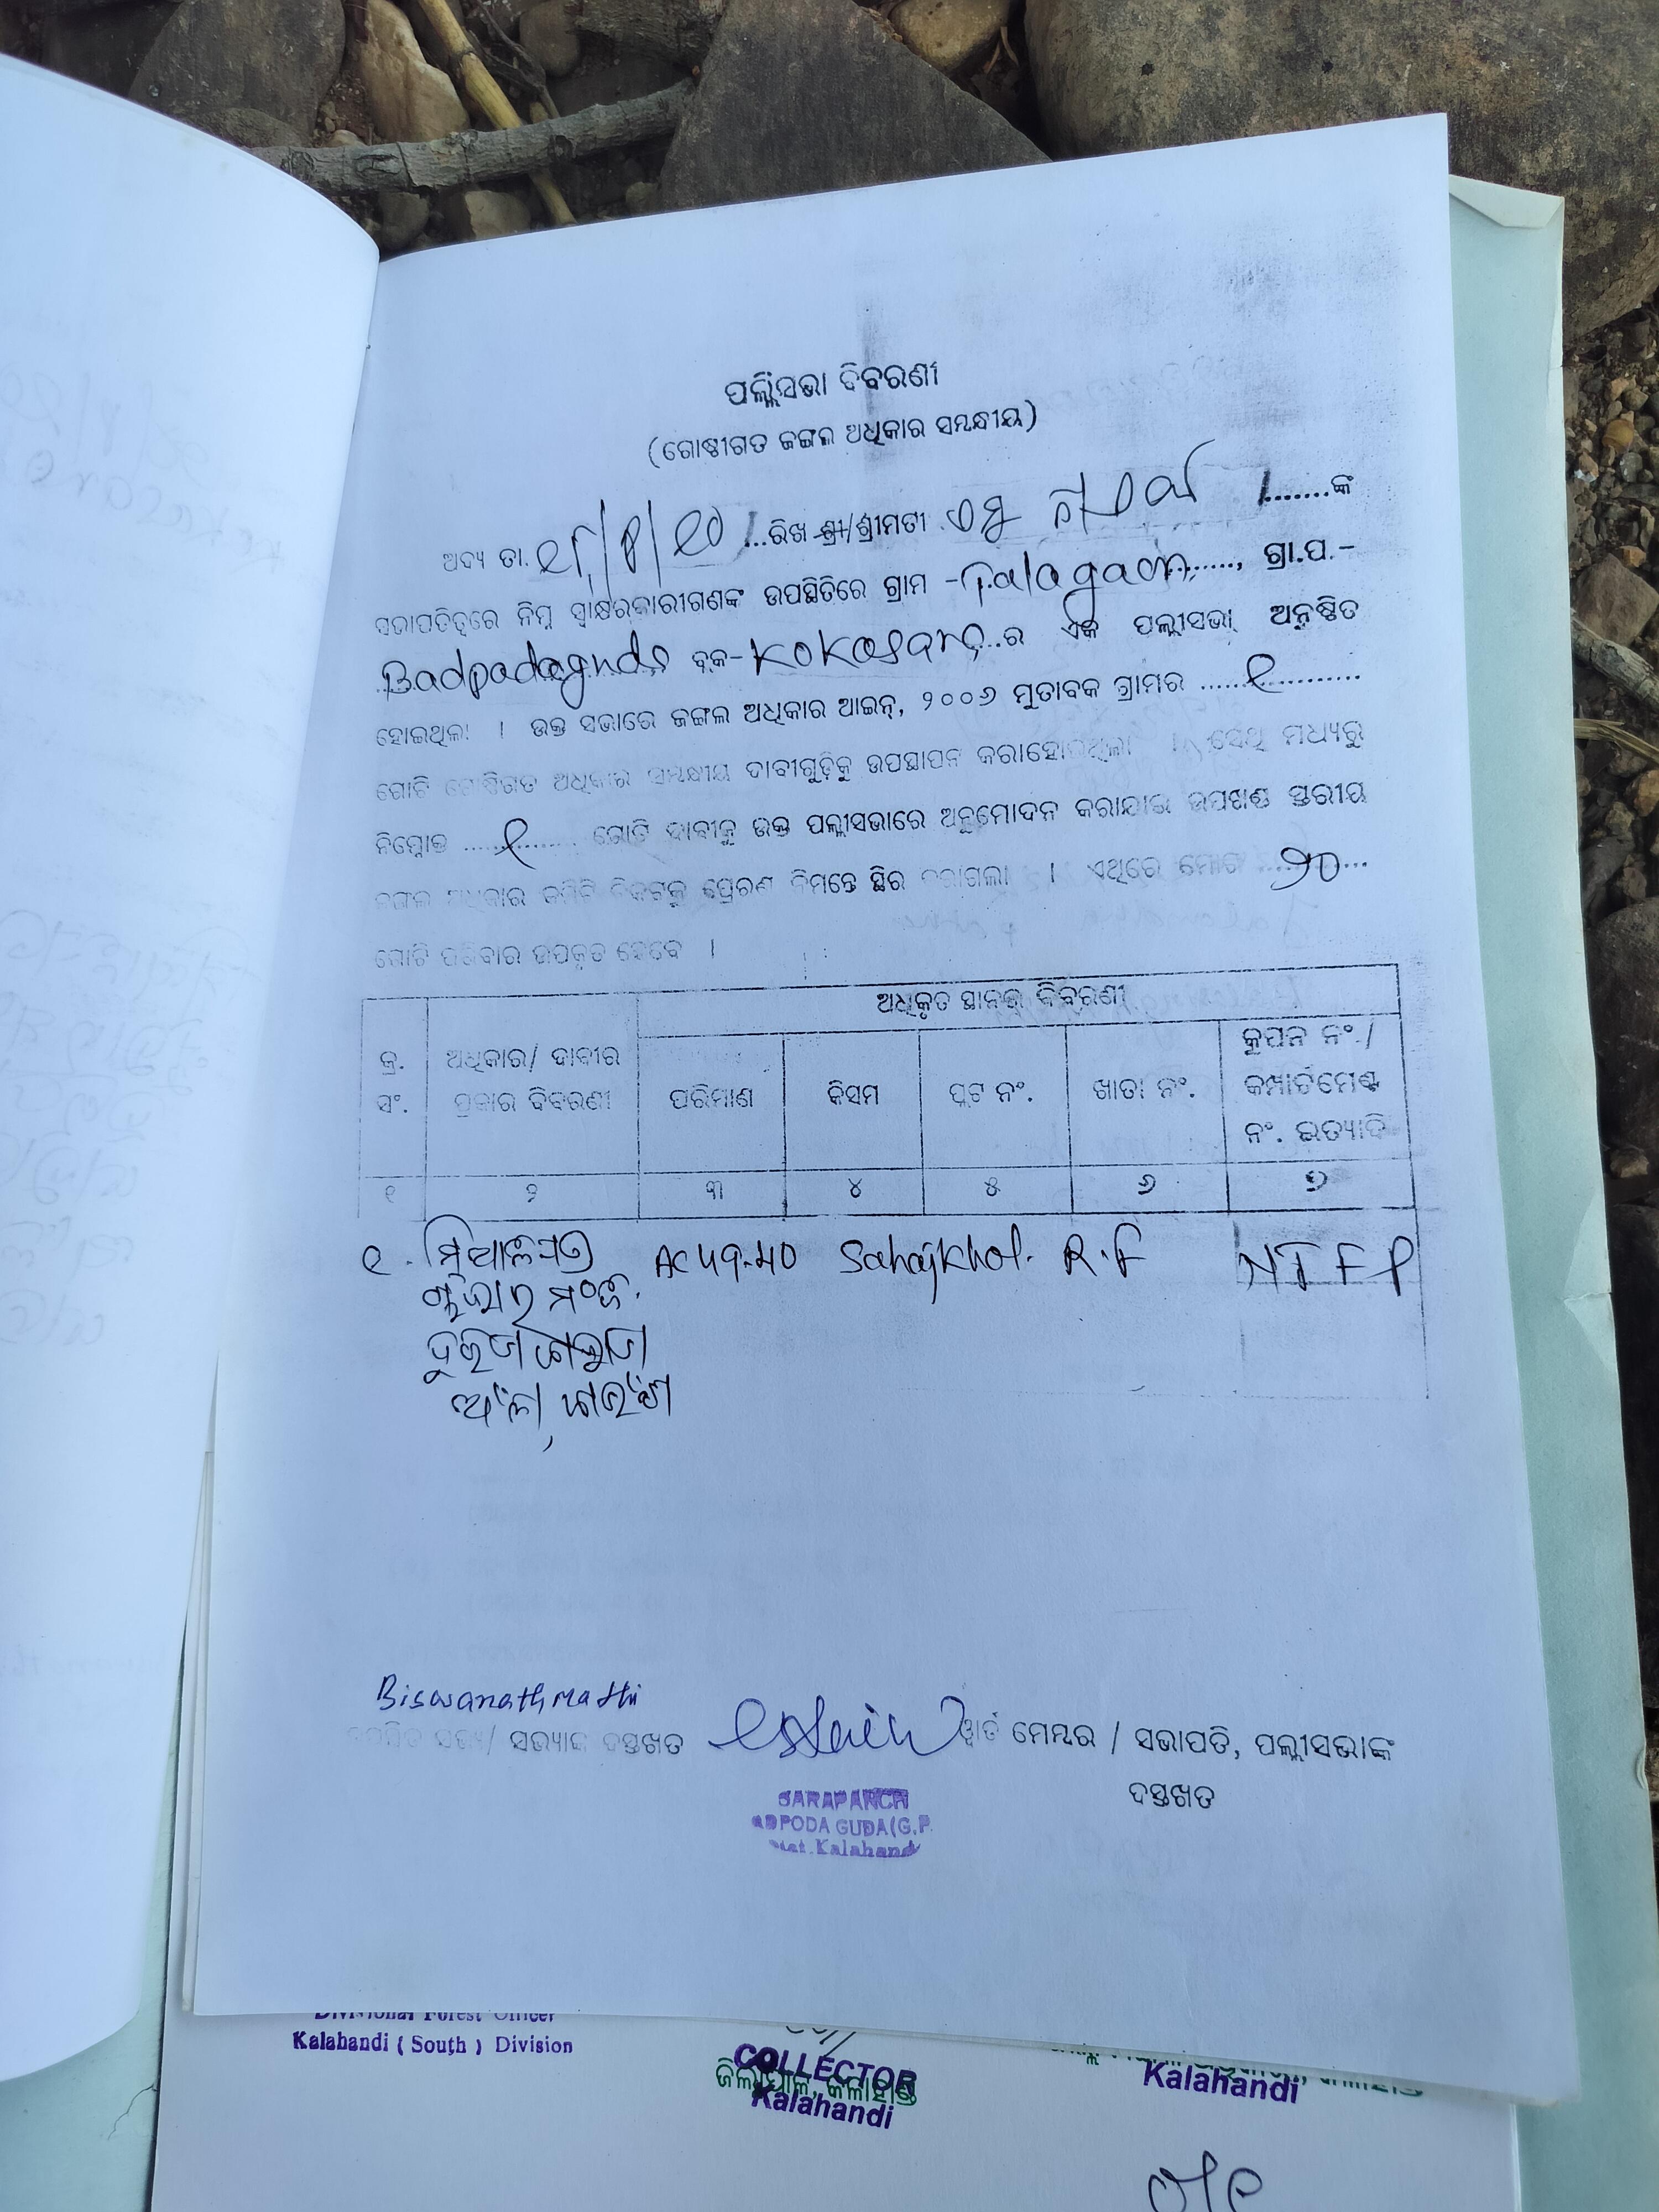 ପଲ୍ଲୀସଭା ବିବରଣୀ
(ଗୋଷ୍ଠୀଗତ ଜଙ୍ଗଲ ଅଧିକାର ସମ୍ବନ୍ଧୀୟ)
ଅଦ୍ୟ ତା. ...ରିଖ ଶ୍ରୀ/ଶ୍ରୀମତୀ .......ଙ୍କ
ସଭାପତିତ୍ୱରେ ନିମ୍ନ ସ୍ୱାକ୍ଷରକାରୀଗଣଙ୍କ ଉପସ୍ଥିତିରେ ଗ୍ରାମ -Talagaon......, ଗ୍ରା.ପ.-
Badpodaguda ବ୍ଲକ-Kokosara...ର ଏକ ପଲ୍ଲୀସଭା ଅନୁଷ୍ଠିତ
ହୋଇଥିଲା । ଉକ୍ତ ସଭାରେ ଜଙ୍ଗଲ ଅଧିକାର ଆଇନ୍, ୨୦୦୬ ମୁତାବକ ଗ୍ରାମର ......୧...........
ଗୋଟି ଗୋଷ୍ଠିଗତ ଅଧିକାର ସମ୍ବନ୍ଧୀୟ ଦାବୀଗୁଡ଼ିକୁ ଉପସ୍ଥାପନ କରାହୋଇଥିଲା । ସେଥି ମଧ୍ୟରୁ
ନିମ୍ନୋକ୍ତ .....୧....... ଗୋଟି ଦାବୀକୁ ଉକ୍ତ ପଲ୍ଲୀସଭାରେ ଅନୁମୋଦନ କରାଯାଇ ଉପଖଣ୍ଡ ସ୍ତରୀୟ
ଜଙ୍ଗଲ ଅଧିକାର କମିଟି ନିକଟକୁ ପ୍ରେରଣ ନିମନ୍ତେ ସ୍ଥିର କରାଗଲା । ଏଥିରେ ମୋଟ ....୨୦...
ଗୋଟି ପରିବାର ଉପକୃତ ହେବେ ।
ଅଧିକୃତ ସ୍ଥାନର ବିବରଣୀ
କ୍ର. ସଂ.
ଅଧିକାର/ ଦାବୀର
ପ୍ରକାର ବିବରଣୀ
ପରିମାଣ
କିସମ
ପ୍ଲଟ ନଂ.
ଖାତା ନଂ.
କୁପନ ନଂ./
କମ୍ପାର୍ଟମେଣ୍ଟ
ନଂ. ଇତ୍ୟାଦି
୧ ୨ ୩ ୪ ୫ ୬ ୭
୧. Sahajkhol. R.F NTFP
Biswanath Majhi
ସଭ୍ୟ/ ସଭ୍ୟାଙ୍କ ଦସ୍ତଖତ
ୱାର୍ଡ ମେମ୍ବର / ସଭାପତି, ପଲ୍ଲୀସଭାଙ୍କ
ଦସ୍ତଖତ
SARAPANCH
ADPODA GUDA(G.P.
Dist.Kalahandi
Divisional Forest Officer
Kalahandi ( South ) Division
COLLECTOR
ଜିଲ୍ଲାପାଳ, କଳାହାଣ୍ଡି
Kalahandi
Kalahandi